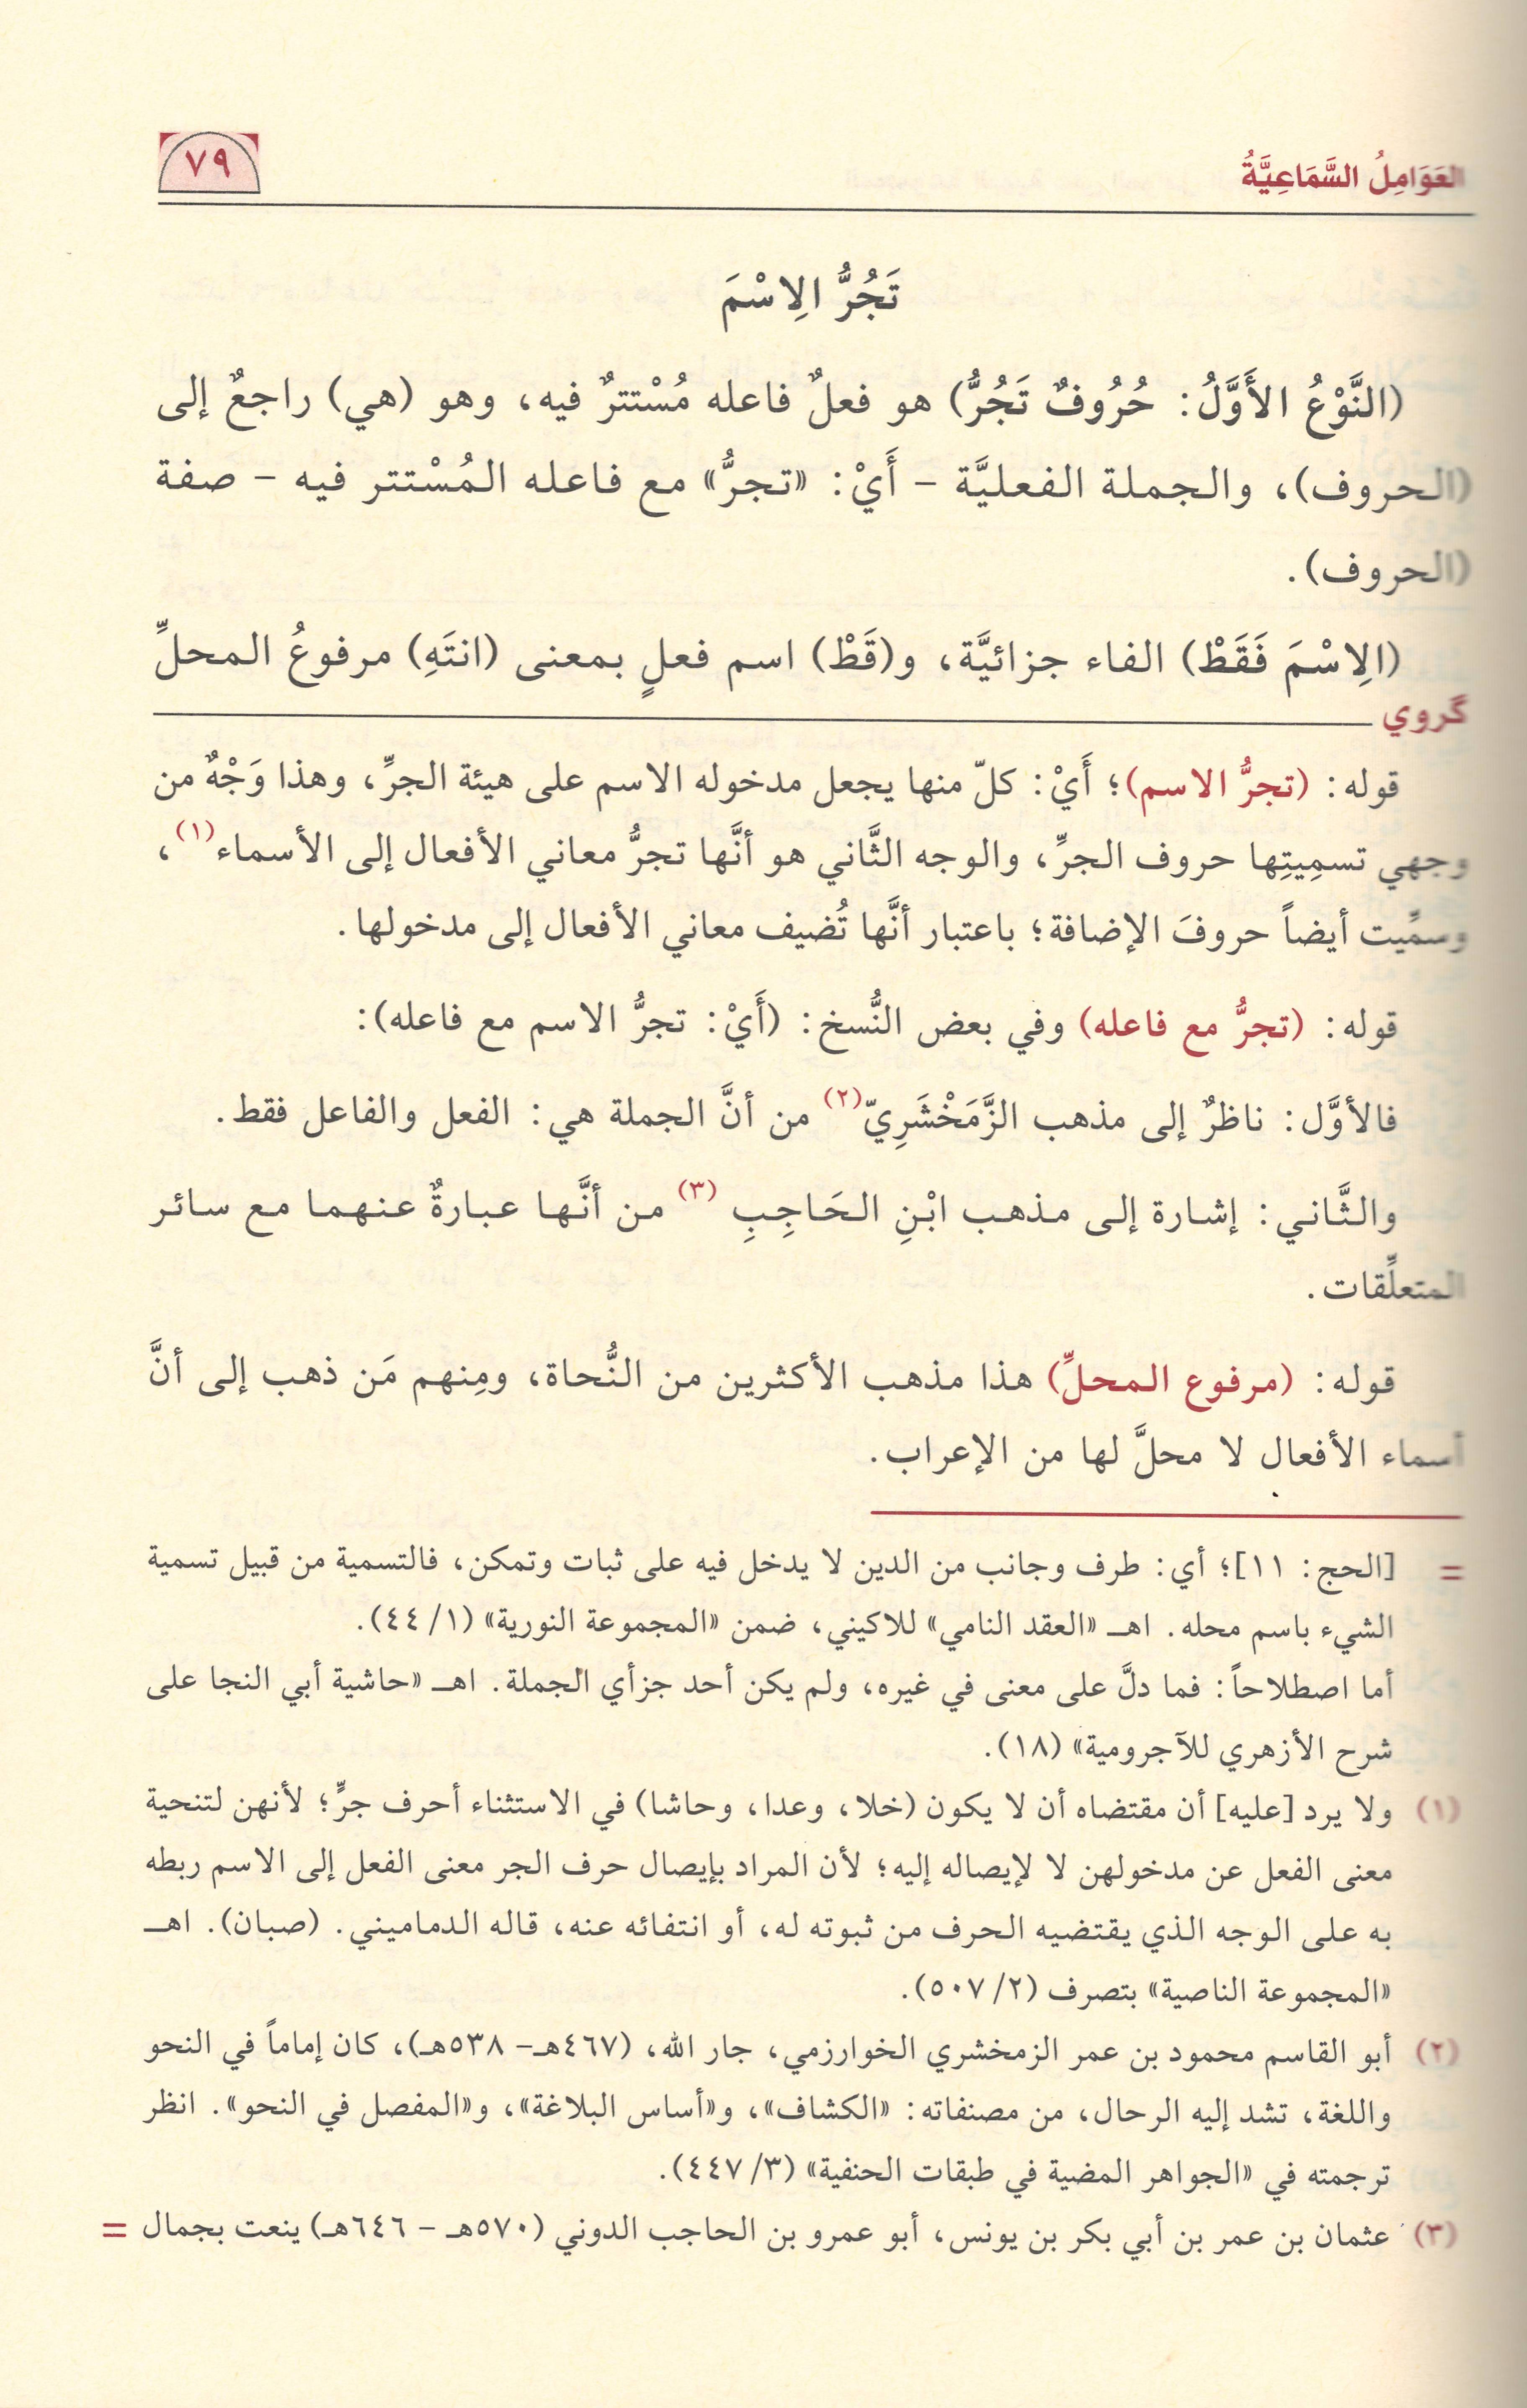 العَوَامِلُ السَّمَاعِيَّةُ
٧٩
تَجُرُّ الِاسْمَ
(النَّوْعُ الأَوَّلُ: حُرُوفٌ تَجُرُّ) هو فعلٌ فاعله مُسْتترٌ فيه، وهو (هي) راجعٌ إلى
(الحروف)، والجملة الفعليَّة - أَيْ: «تجرُّ» مع فاعله المُسْتتر فيه - صفة
(الحروف).
(الِاسْمَ فَقَطْ) الفاء جزائيَّة، و(قَطْ) اسم فعلٍ بمعنى (انتَهِ) مرفوعُ المحلِّ
گروي
قوله: (تجرُّ الاسم)؛ أَيْ: كلّ منها يجعل مدخوله الاسم على هيئة الجرِّ، وهذا وَجْهٌ من
وجهي تسمِيتِها حروف الجرِّ، والوجه الثَّاني هو أنَّها تجرُّ معاني الأفعال إلى الأسماء(١)،
وسمِّيت أيضاً حروفَ الإضافة؛ باعتبار أنَّها تُضيف معاني الأفعال إلى مدخولها.
قوله: (تجرُّ مع فاعله) وفي بعض النُّسخ: (أَيْ: تجرُّ الاسم مع فاعله):
فالأوَّل: ناظرٌ إلى مذهب الزَّمَخْشَرِيّ(٢) من أنَّ الجملة هي: الفعل والفاعل فقط.
والثَّاني: إشارة إلى مذهب ابْنِ الحَاجِبِ (٣) من أنَّها عبارةٌ عنهما مع سائر
المتعلِّقات.
قوله: (مرفوع المحلِّ) هذا مذهب الأكثرين من النُّحاة، ومِنهم مَن ذهب إلى أنَّ
أسماء الأفعال لا محلَّ لها من الإعراب.
= [الحج: ١١]؛ أي: طرف وجانب من الدين لا يدخل فيه على ثبات وتمكن، فالتسمية من قبيل تسمية
الشيء باسم محله. اهـ «العقد النامي» للاكيني، ضمن «المجموعة النورية» (١/ ٤٤).
أما اصطلاحاً: فما دلَّ على معنى في غيره، ولم يكن أحد جزأي الجملة. اهـ «حاشية أبي النجا على
شرح الأزهري للآجرومية» (١٨).
(١) ولا يرد [عليه] أن مقتضاه أن لا يكون (خلا، وعدا، وحاشا) في الاستثناء أحرف جرٍّ؛ لأنهن لتنحية
معنى الفعل عن مدخولهن لا لإيصاله إليه؛ لأن المراد بإيصال حرف الجر معنى الفعل إلى الاسم ربطه
به على الوجه الذي يقتضيه الحرف من ثبوته له، أو انتفائه عنه، قاله الدماميني. (صبان). اهـ
«المجموعة الناصية» بتصرف (٢/ ٥٠٧).
(٢) أبو القاسم محمود بن عمر الزمخشري الخوارزمي، جار الله، (٤٦٧هـ- ٥٣٨هـ)، كان إماماً في النحو
واللغة، تشد إليه الرحال، من مصنفاته: «الكشاف»، و«أساس البلاغة»، و«المفصل في النحو». انظر
ترجمته في «الجواهر المضية في طبقات الحنفية» (٣/ ٤٤٧).
(٣) عثمان بن عمر بن أبي بكر بن يونس، أبو عمرو بن الحاجب الدوني (٥٧٠هـ - ٦٤٦هـ) ينعت بجمال =